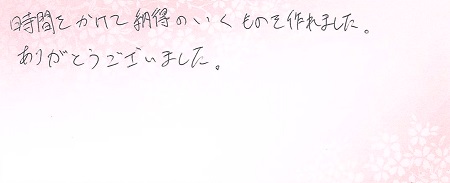 時間をかけて納得のいくものを作れました。
ありがとうございました。